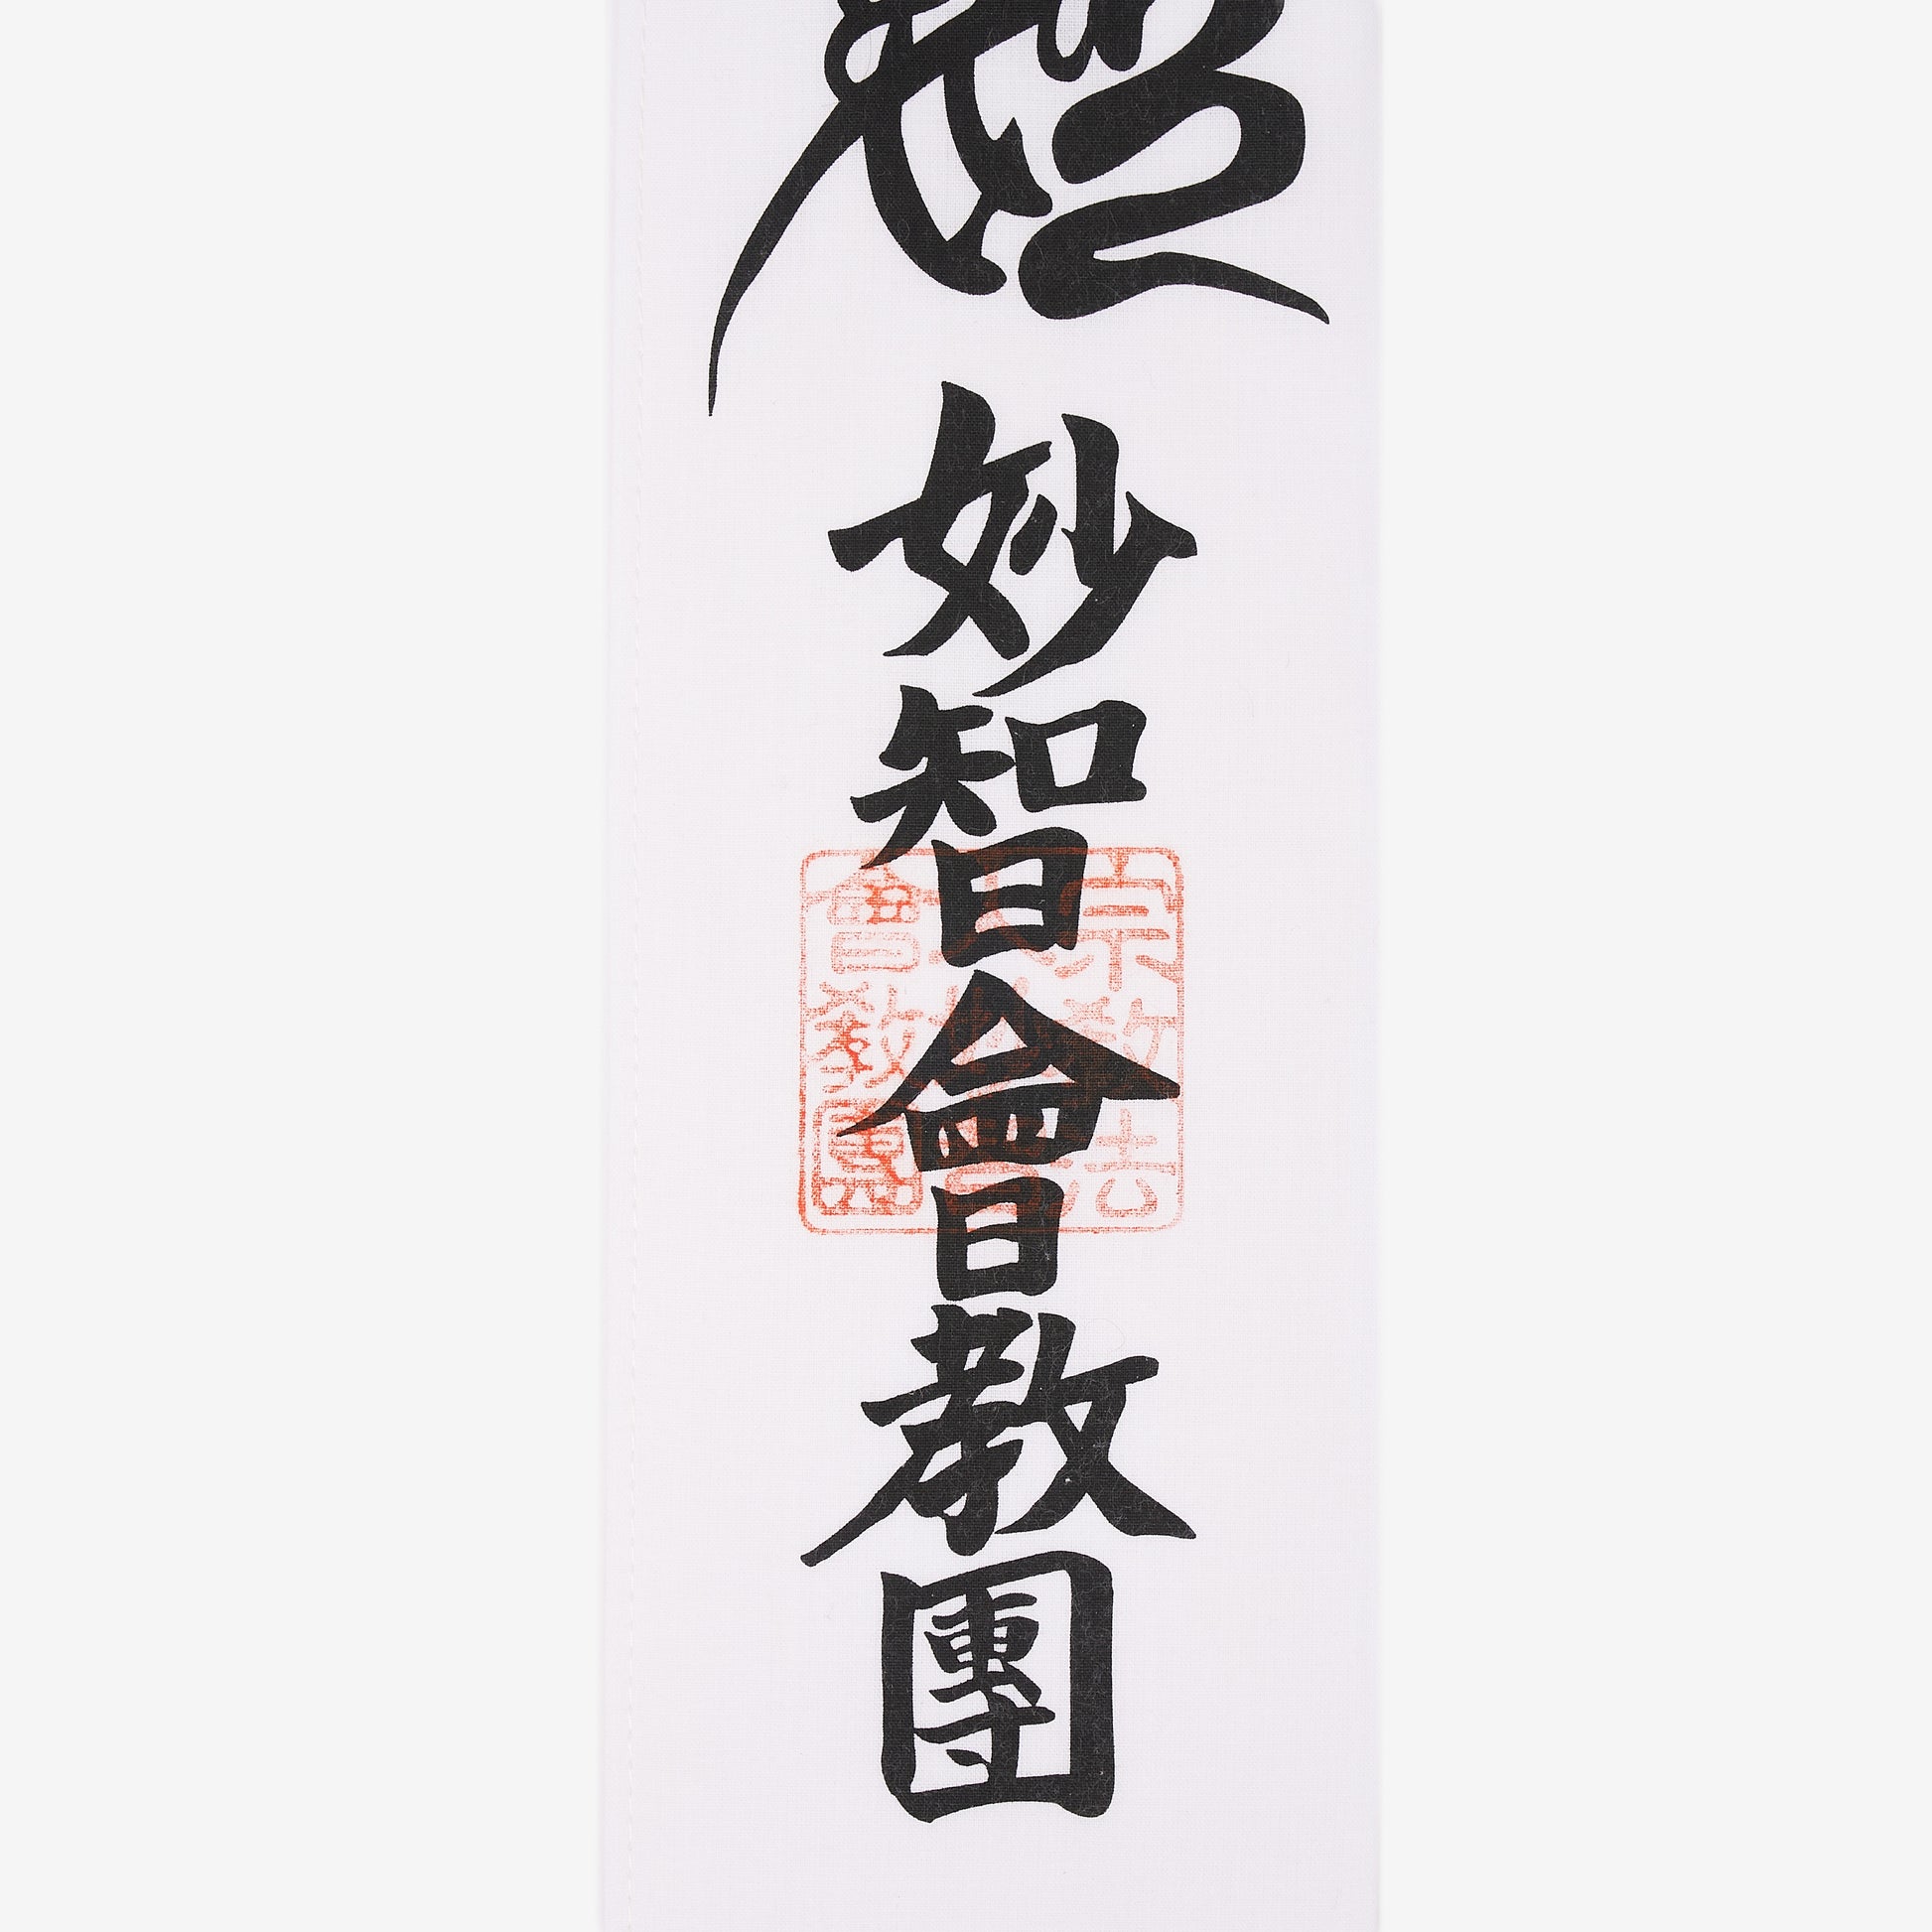 妙智會教團
宗教法
人妙智
會教團